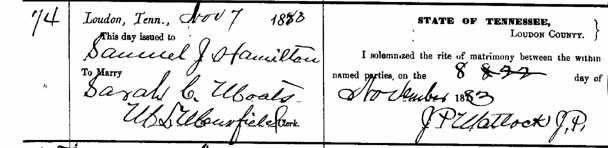 74
Loudon, Tenn., Nov 7 1883
This day issued to
Samuel J. Hamilton
To Marry
Sarah C. Moats
Clerk.
STATE OF TENNESSEE,
LOUDON COUNTY.
I solemnized the rite of matrimony between the within
named parties, on the 8 day of
November 1883
J.P. Matlock J.P.